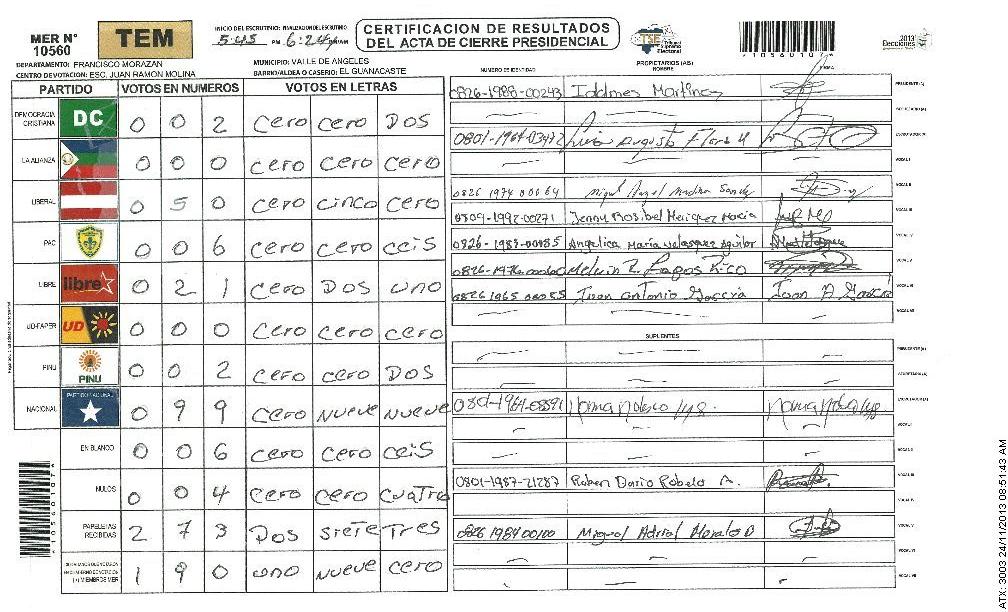 MER N° 10560
TEM
INICIO DEL ESCRUTINIO: FINALIZACION DEL ESCRUTINIO:
5:45 PM 6:24 PM
CERTIFICACION DE RESULTADOS
DEL ACTA DE CIERRE PRESIDENCIAL
TSE Tribunal Supremo Electoral
*1056010?*
2013 Elecciones
DEPARTAMENTO: FRANCISCO MORAZAN
MUNICIPIO: VALLE DE ANGELES
CENTRO DE VOTACION: ESC. JUAN RAMON MOLINA
BARRIO/ALDEA O CASERIO: EL GUANACASTE
PARTIDO VOTOS EN NUMEROS VOTOS EN LETRAS
DEMOCRACIA CRISTIANA DC 0 0 2 cero cero DOS
LA ALIANZA 0 0 0 cero cero cero
LIBERAL 0 5 0 cero cinco cero
PAC 0 0 6 cero cero ceis
LIBRE libre 0 2 1 cero DOS uno
UD-FAPER UD 0 0 0 cero cero cero
PINU PINU 0 0 2 cero cero DOS
NACIONAL PARTIDO NACIONAL 0 9 9 cero nueve nueve
EN BLANCO 0 0 6 cero cero ceis
NULOS 0 0 4 cero cero cuatro
PAPELETAS RECIBIDAS 2 7 3 DOS siete Tres
(+) MIEMBROS MER 1 9 0 uno nueve cero
NUMERO DE IDENTIDAD PROPIETARIOS (AS) NOMBRE FIRMA
0826-1988-00243 Martinez PRESIDENTE(A)
SECRETARIO(A)
0801-1964-03472 Luis Augusto Flores ESCRUTADOR(A)
VOCAL I
0826 1974 00064 Miguel Angel Medina VOCAL II
0809-1992-00271 Jenny VOCAL III
0826-1987-00485 Angelica Maria Velasquez Aguilar VOCAL IV
Melvin Lagos Rico VOCAL V
0826 1965 00055 Juan Antonio Garcia Juan A. Garcia VOCAL VI
VOCAL VII
SUPLENTES
PRESIDENTE(A)
SECRETARIO(A)
Norma ESCRUTADOR(A)
VOCAL I
VOCAL II
0801-1987-21287 Ruben Dario Robelo A. VOCAL III
VOCAL IV
0826 1984 00100 Miguel VOCAL V
VOCAL VI
VOCAL VII
ATX: 3003 24/11/2013 08:51:43 AM